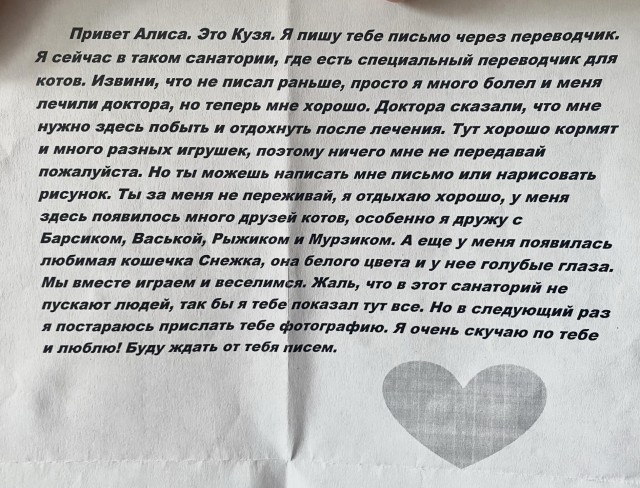 Привет Алиса. Это Кузя. Я пишу тебе письмо через переводчик.
Я сейчас в таком санатории, где есть специальный переводчик для
котов. Извини, что не писал раньше, просто я много болел и меня
лечили доктора, но теперь мне хорошо. Доктора сказали, что мне
нужно здесь побыть и отдохнуть после лечения. Тут хорошо кормят
и много разных игрушек, поэтому ничего мне не передавай
пожалуйста. Но ты можешь написать мне письмо или нарисовать
рисунок. Ты за меня не переживай, я отдыхаю хорошо, у меня
здесь появилось много друзей котов, особенно я дружу с
Барсиком, Васькой, Рыжиком и Мурзиком. А еще у меня появилась
любимая кошечка Снежка, она белого цвета и у нее голубые глаза.
Мы вместе играем и веселимся. Жаль, что в этот санаторий не
пускают людей, так бы я тебе показал тут все. Но в следующий раз
я постараюсь прислать тебе фотографию. Я очень скучаю по тебе
и люблю! Буду ждать от тебя писем.